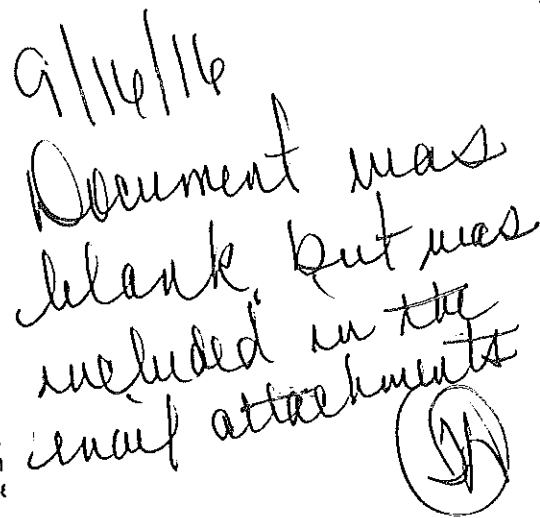 9/16/16
Document was
blank, but was
included in the
email attachments